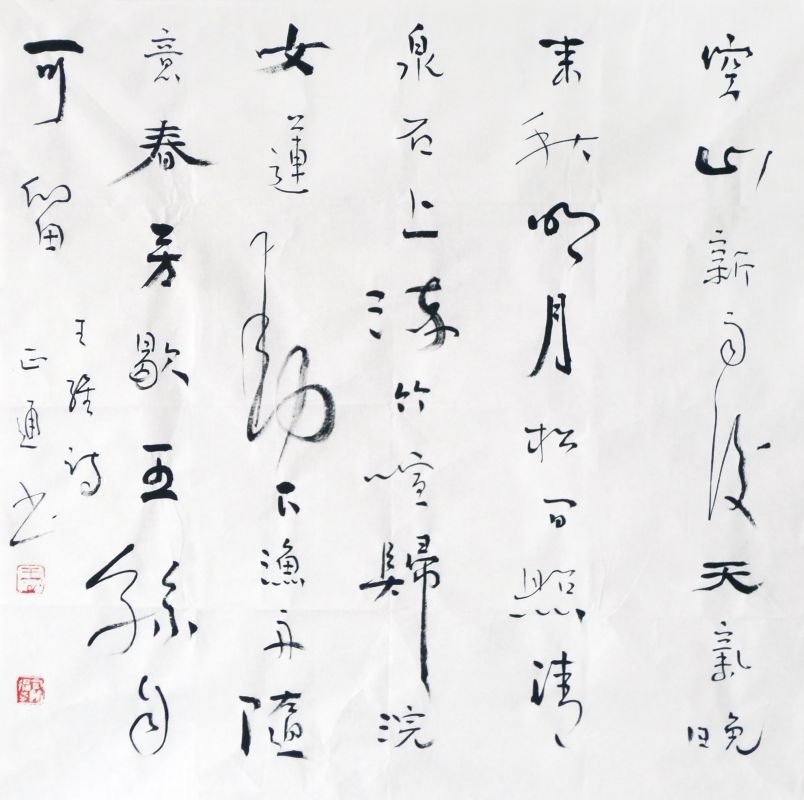 空山新雨後天氣晚
來秋明月松間照清
泉石上流竹喧歸浣
女蓮動下漁舟隨
意春芳歇王孫自
可留
王維詩
正通书